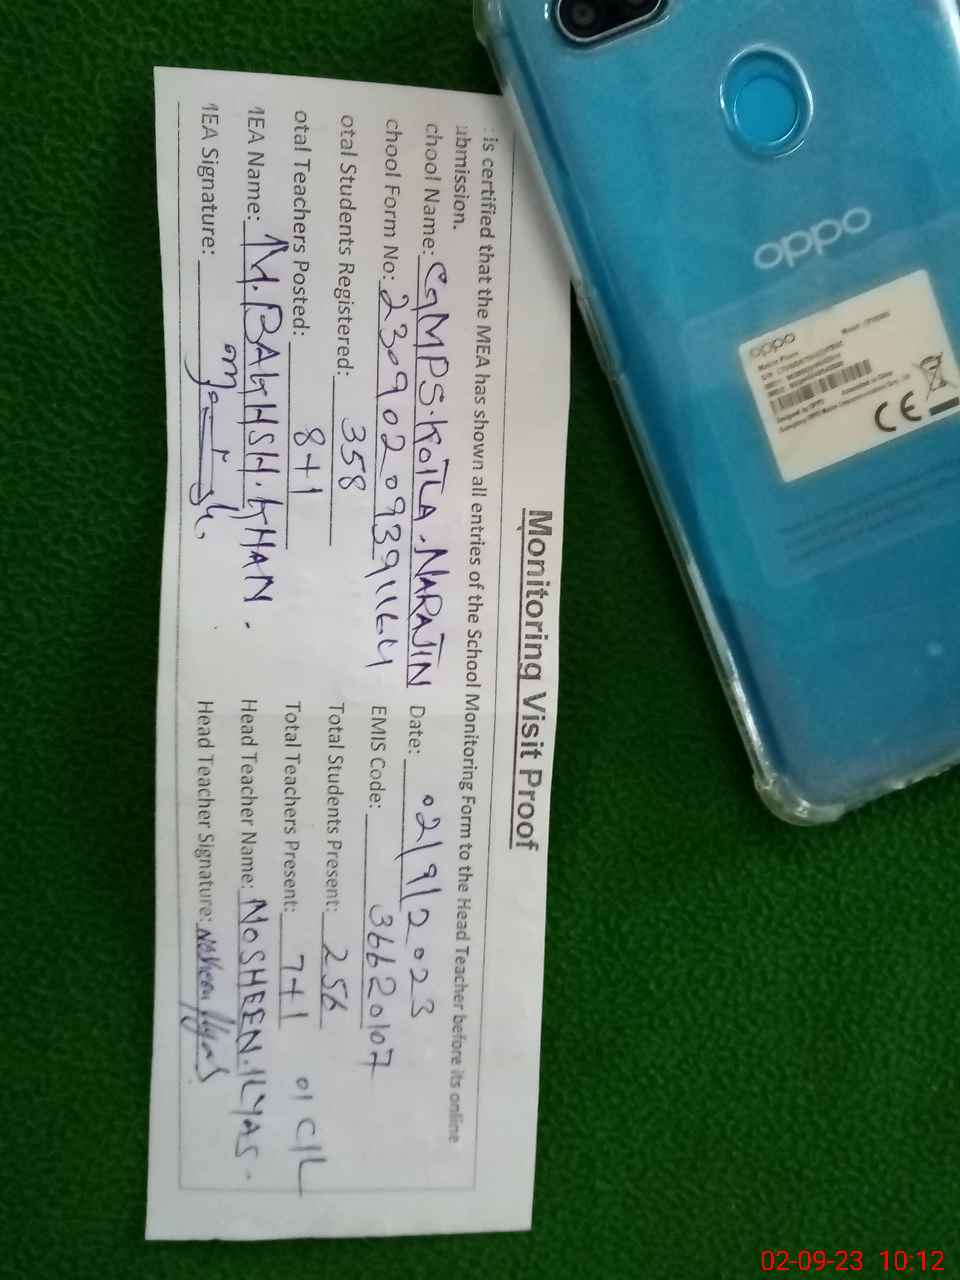 Monitoring Visit Proof
is certified that the MEA has shown all entries of the School Monitoring Form to the Head Teacher before its online
ubmission.
chool Name: CGMPS.KOTLA.NARAJIN Date: 02/9/2023
chool Form No: 23090209391164 EMIS Code: 36620107
otal Students Registered: 358 Total Students Present: 256
otal Teachers Posted: 8+1 Total Teachers Present: 7+1 01 C/L
MEA Name: M.BAKHSH.KHAN. Head Teacher Name: NOSHEEN.ILYAS.
MEA Signature: Head Teacher Signature: Nosheen Ilyas
oppo
oppo
Mobile Phone
Designed by OPPO
CE
02-09-23 10:12